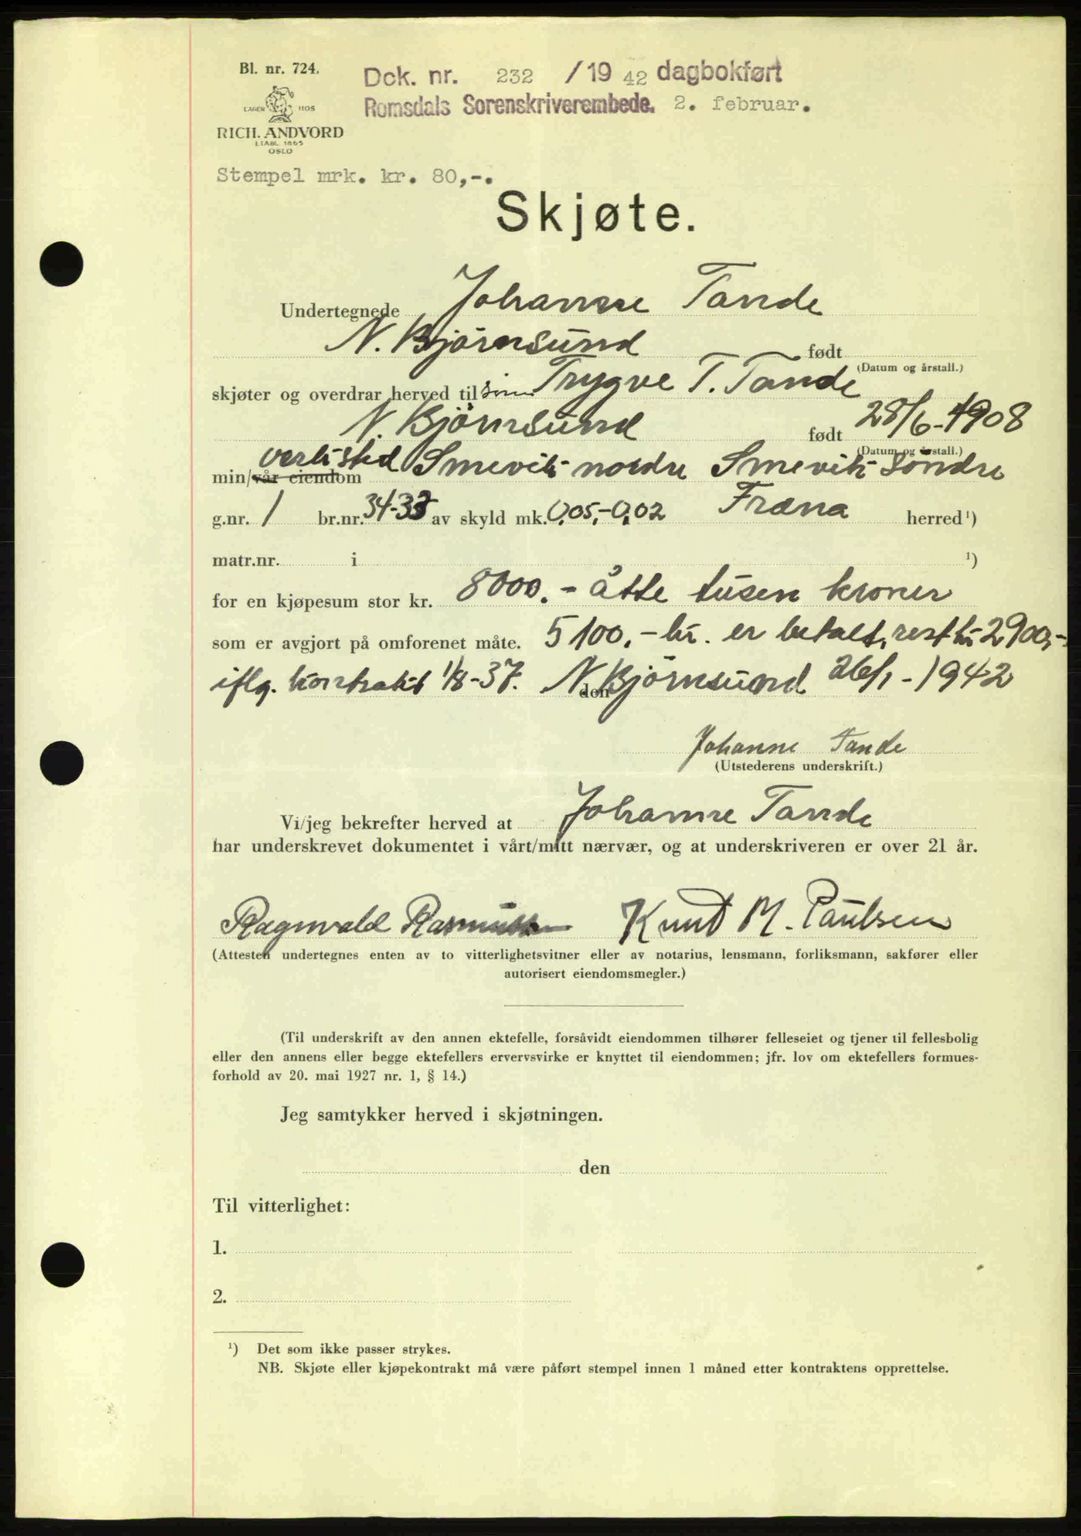 Bl. nr. 724.
Dok. nr. 232 /19 42 dagbokført
Romsdals Sorenskriverembede. 2. februar.
LAGER HOS
RICH. ANDVORD
ETABL. 1865
OSLO
Stempel mrk. kr. 80,-.
Skjøte.
Undertegnede Johanne Tande
N. Bjørnsund født
(Datum og årstall.)
skjøter og overdrar herved til Trygve T. Tande
N. Bjørnsund født 28/6-1908
(Datum og årstall.)
min/vår eiendom Smevik nordre Smevik Søndre
g.nr. 1 br.nr. 34-33 av skyld mk. 0,05,-0,02 Fræna herred¹)
matr.nr. i ¹)
for en kjøpesum stor kr. 8000.- åtte tusen kroner
som er avgjort på omforenet måte. 5100,- kr. er betalt, rest kr 2900,-
iflg. kontrakt 1/8-37. N. Bjørnsund den 26/1-1942
Johanne Tande
(Utstederens underskrift.)
Vi/jeg bekrefter herved at Johanne Tande
har underskrevet dokumentet i vårt/mitt nærvær, og at underskriveren er over 21 år.
Ragnvald Knut M. Paulsen
(Attesten undertegnes enten av to vitterlighetsvitner eller av notarius, lensmann, forliksmann, sakfører eller
autorisert eiendomsmegler.)
(Til underskrift av den annen ektefelle, forsåvidt eiendommen tilhører felleseiet og tjener til fellesbolig
eller den annens eller begge ektefellers ervervsvirke er knyttet til eiendommen; jfr. lov om ektefellers formues-
forhold av 20. mai 1927 nr. 1, § 14.)
Jeg samtykker herved i skjøtningen.
den
Til vitterlighet:
1.
2.
¹) Det som ikke passer strykes.
NB. Skjøte eller kjøpekontrakt må være påført stempel innen 1 måned etter kontraktens opprettelse.